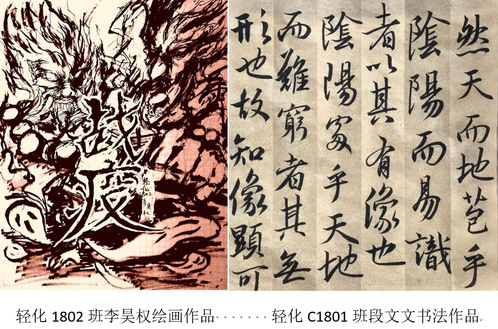 战疫
然天而地苞乎
陰陽而易識
者以其有像也
陰陽處乎天地
而難窮者其無
形也故知像顯可
轻化 1802 班李昊权绘画作品·······轻化 C1801 班段文文书法作品